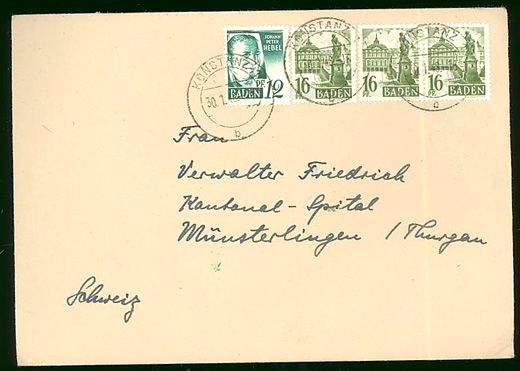 JOHANN
PETER
HEBEL
PF.
BADEN 12
16 BADEN
16 BADEN
16 BADEN
KONSTANZ
b
KONSTANZ
KONSTANZ
b
Frau
Verwalter Friedrich
Kantonal-Spital
Münsterlingen / Thurgau
Schweiz